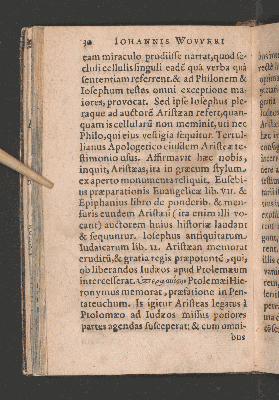 30 IOHANNIS WOVVERI
eam miraculo prodiisse narrat, quod se-
clusi cellulis singuli eadẽ quâ verba quâ
sententiam referrent. & ad Philonem &
Iosephum testes omni exceptione ma
iores, provocat. Sed ipse Iosephus ple-
raque ad auctorẽ Aristæan refert, quan-
quam is cellularũ non meminit, uti nec
Philo, qui eius vestigia sequitur. Tertul-
lianus Apologetico eiusdem Aristeæ te-
stimonio usus. Affirmavit hæc nobis,
inquit, Aristæas, ita in græcum stylum,
ex aperto monumenta reliquit. Eusebi-
us præparationis Euangelicæ lib. VII. &
Epiphanius libro de ponderib. & men-
suris eundem Aristæũ (ita enim illi vo-
cant) auctorem huius historiæ laudant
& sequuntur. Iosephus antiquitatum
Iudaicarum lib. 12. Aristæan memorat
eruditũ, & gratia regis præpotentẽ, qui,
ob liberandos Iudæos apud Ptolemæum
intercesserat. Ptolemæi Hie
ronymus memorat, præfatione in Pen-
tateuchum. Is igitur Aristeas legatus à
Ptolomæo ad Iudæos missus potiores
partes agendas susceperat: & cum omni-
bus